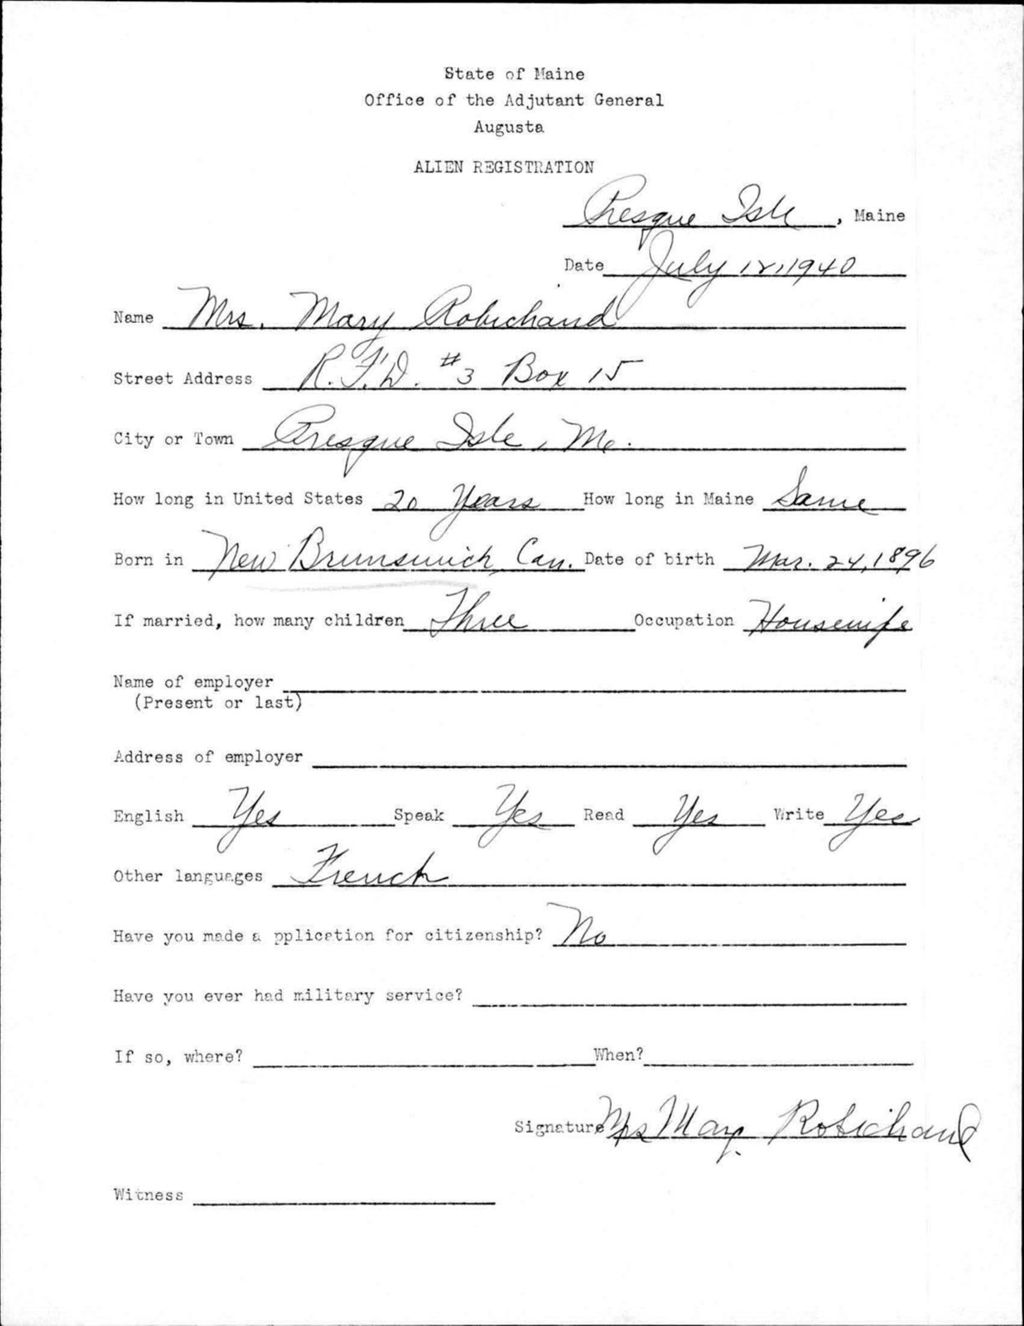 State of Maine
Office of the Adjutant General
Augusta
ALIEN REGISTRATION
Presque Isle, Maine
Date July 12, 1940
Name Mrs. Mary Robichaud
Street Address R.F.D. #3 Box 15
City or Town Presque Isle, Me.
How long in United States 20 Years How long in Maine Same
Born in New Brunswick, Can. Date of birth Mar. 24, 1896
If married, how many children Three Occupation Housewife
Name of employer
(Present or last)
Address of employer
English Yes Speak Yes Read Yes Write Yes
Other languages French
Have you made a pplication for citizenship? No
Have you ever had military service?
If so, where? When?
Signature Mrs Mary Robichaud
Witness